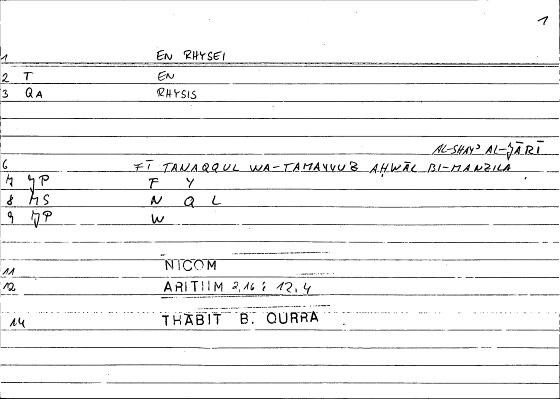 1
1 EN RHYSEI
2 T EN
3 QA RHYSIS
AL-SHAYʾ AL-JĀRĪ
6 FĪ TANAQQUL WA-TAMAYYUZ AḤWĀL BI-MANZILA
7 JP F Y
8 MS N Q L
9 JP W
11 NICOM
12 ARITHM 2,16; 12,4
14 THABIT B. QURRA